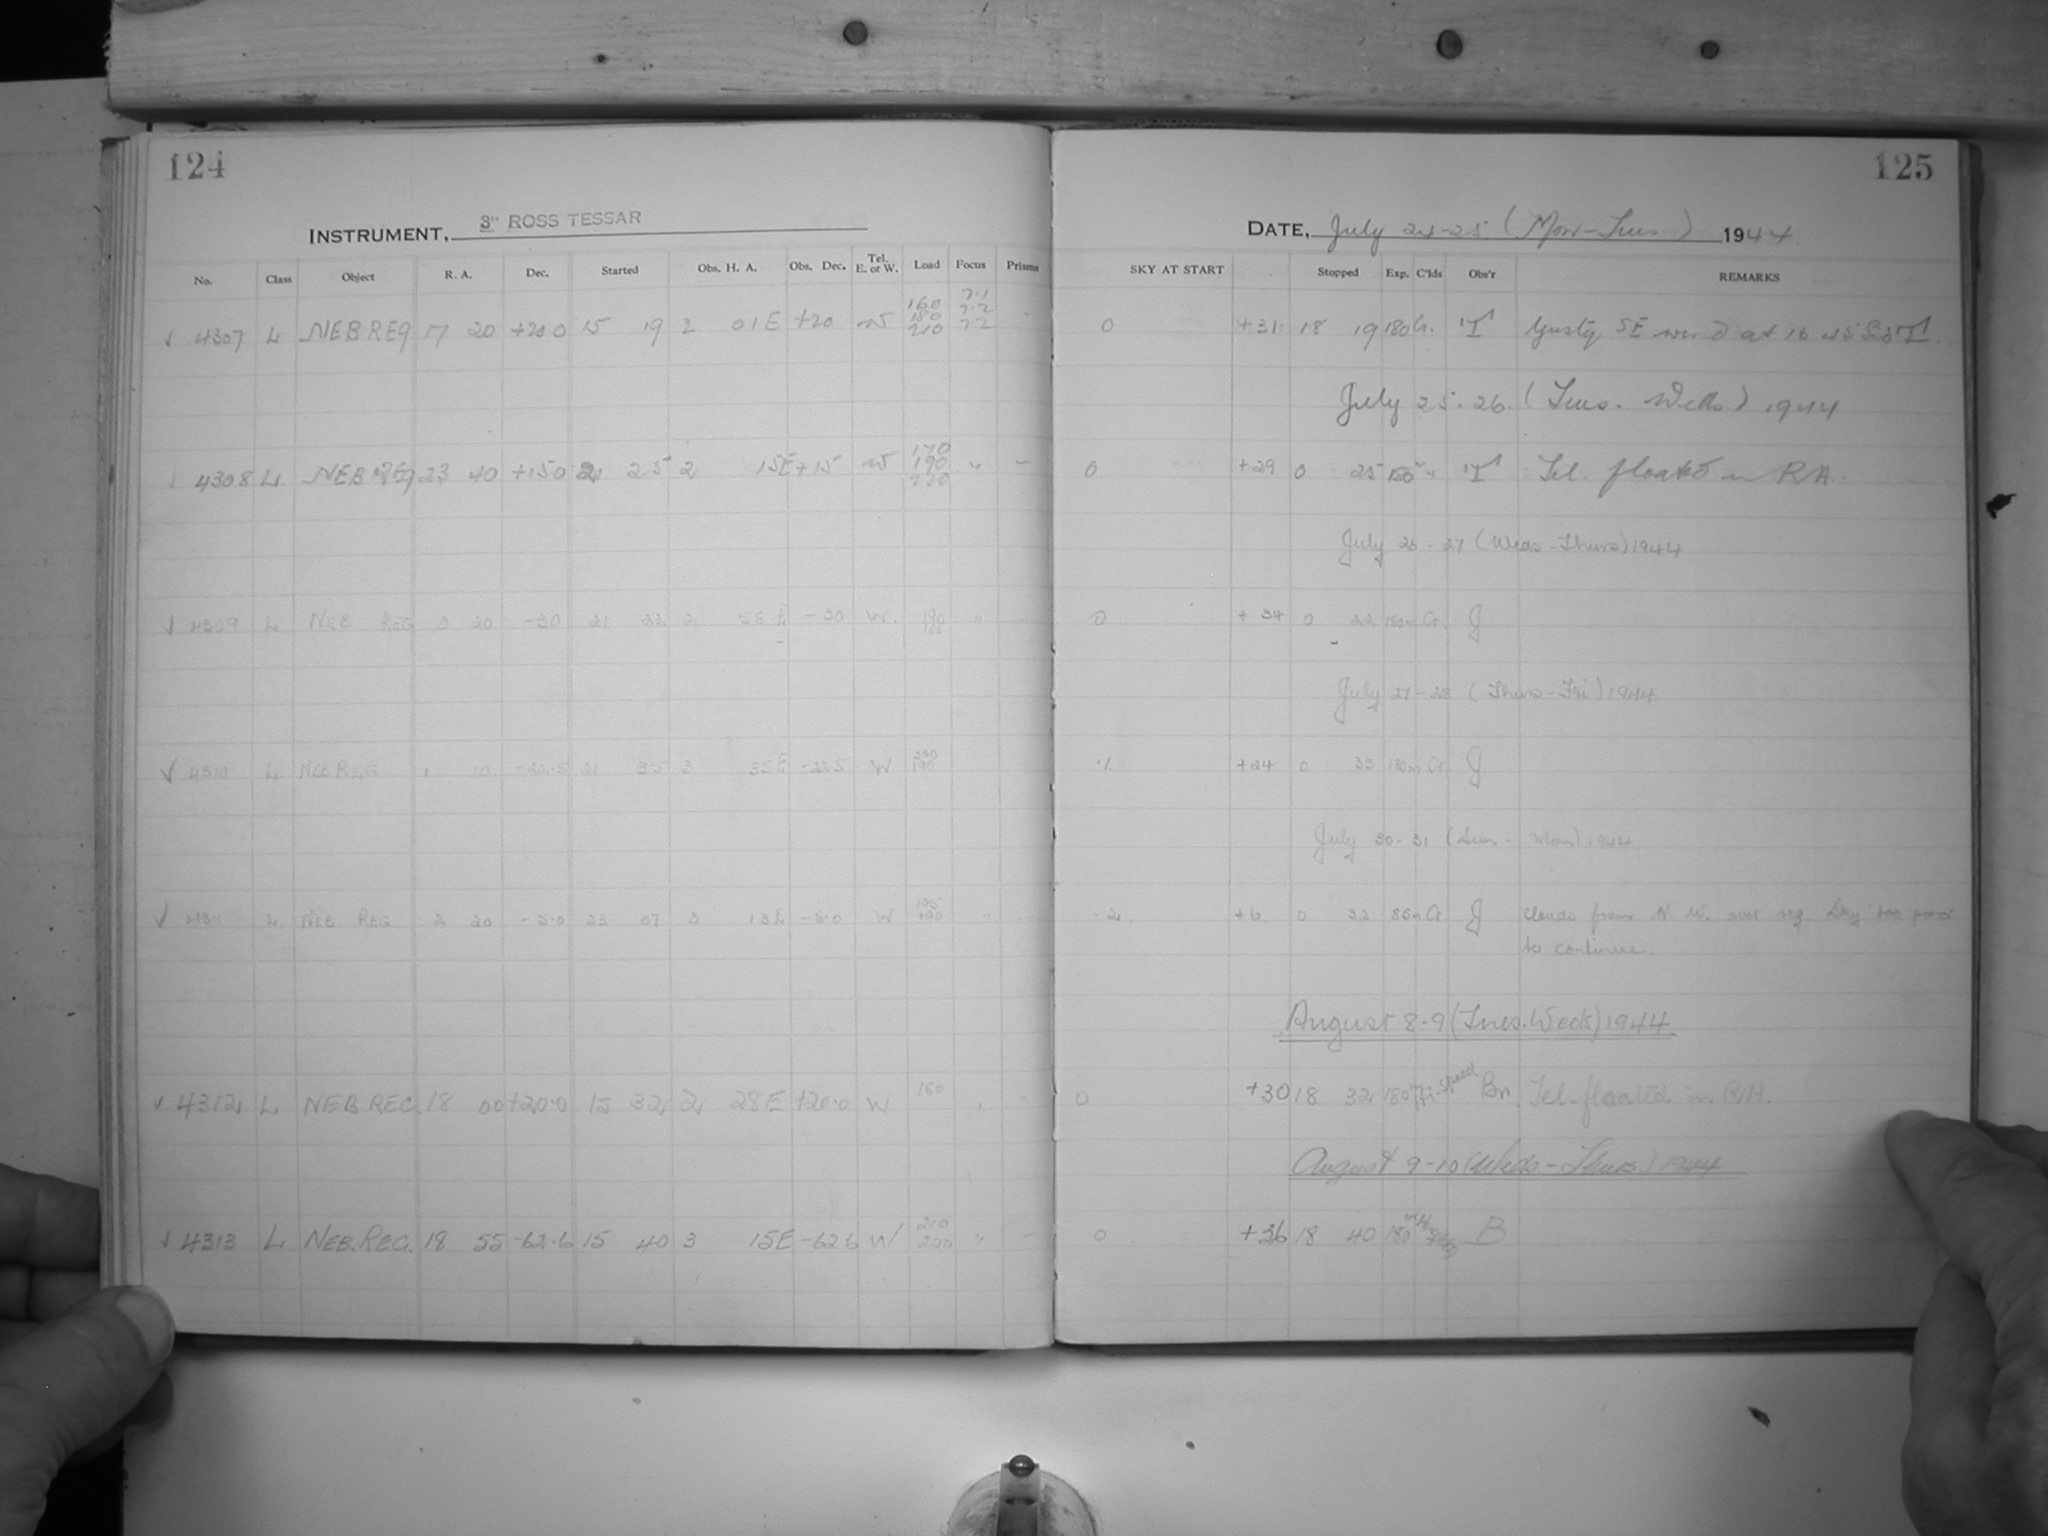 124
INSTRUMENT, 3" ROSS TESSAR
No. Class Object R. A. Dec. Started Obs. H. A. Obs. Dec. Tel. E. or W. Load Focus Prisms
√ 4307 L NEB REG 17 20 +20.0 15 19 2 01E +20 W 160 180 210 7.1 7.2 7.2
√ 4308 L NEB REG 23 40 +15.0 21 25 2 15E +15 W 170 190 220 " -
√ 4309 L NEB REG 0 20 -30 21 22 2 58E -30 W. 190 "
√ 4310 L NEB REG 1 10 -22.5 21 35 3 35E -22.5 W 200 190
√ 4311 L NEB REG 2 20 -5.0 23 07 3 13E -5.0 W 195 190
√ 4312 L NEB REG. 18 00 +20.0 15 32 2 28E +20.0 W 160 "
√ 4313 L NEB. REG. 18 55 -62.6 15 40 3 15E -62.6 W 210 220 " -
125
DATE, July 24-25 (Mon-Tues.) 1944
SKY AT START Stopped Exp. C'lds Obs'r REMARKS
0 +31 18 19 180 Cr. T Gusty SE wind at 16 45
July 25-26 (Tues. Weds) 1944
0 +29 0 25 180 " T Tel. floated in RA.
July 26-27 (Weds-Thurs) 1944
0 +34 0 22 180m Cr. J
July 27-28 (Thurs-Fri) 1944
+24 0 35 180m Cr J
July 30-31 (Sun- Mon) 1944
.2 +6 0 32 85m Cr J Clouds from N W. over reg. Sky too poor
to continue.
August 8-9 (Tues. Weds) 1944
0 +30 18 32 180 Hi-Speed Bn. Tel. floated in R.A.
August 9-10 (Weds-Thurs.) 1944
0 +36 18 40 180 B